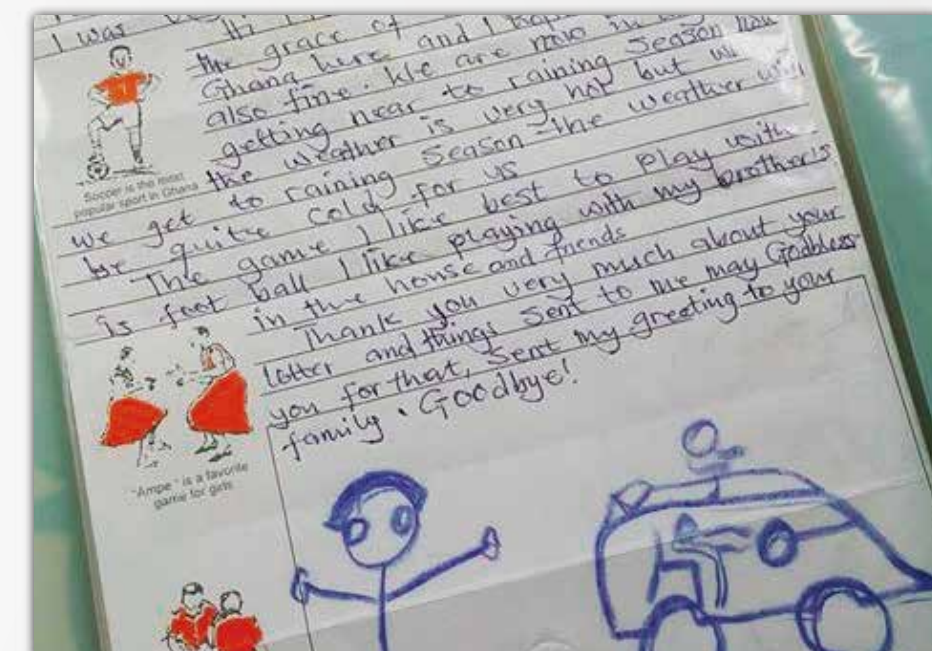 I was
Hi
the grace of
Ghana here and I hope
also fine. We are now in
getting near to raining season now
the weather is very hot but when
we get to raining season the weather will
be quite cold for us
The game I like best to play with
is foot ball I like playing with my brother's
in the house and friends
Thank you very much about your
lotter and things sent to me may Godbless
you for that, sent my greeting to your
family. Goodbye!
Soccer is the most
popular sport in Ghana
"Ampe" is a favorite
game for girls